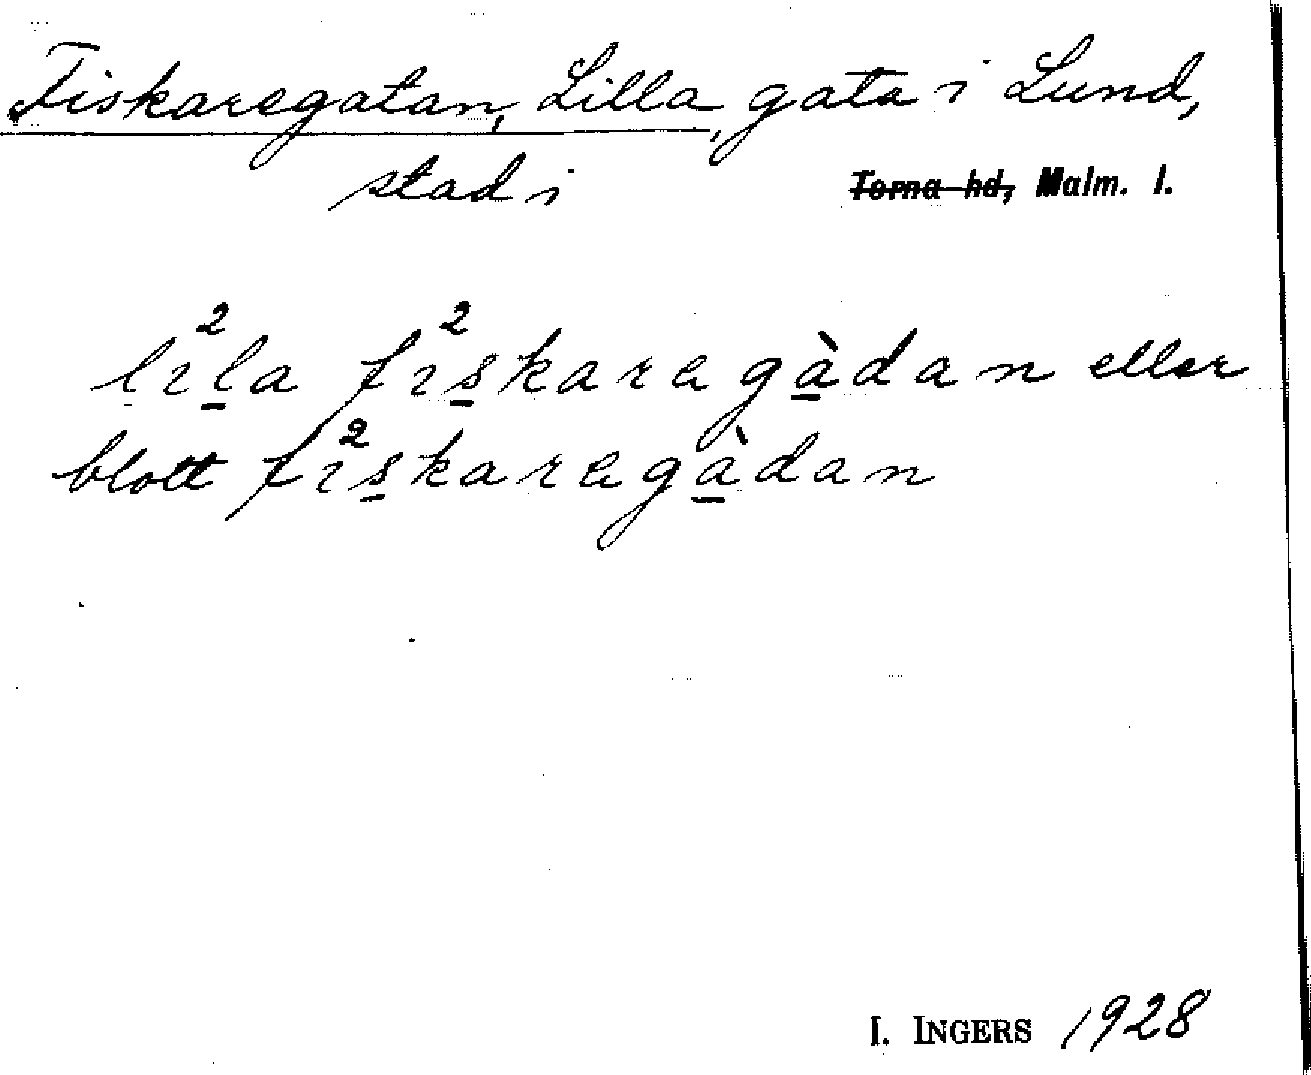 Fiskaregatan, Lilla, gata i Lund,
stad i ~~Torna hd,~~ Malm. l.
lı²l̲a fı²s̲karagà̲dan eller
blott fı²s̲karagà̲dan
I. INGERS 1928